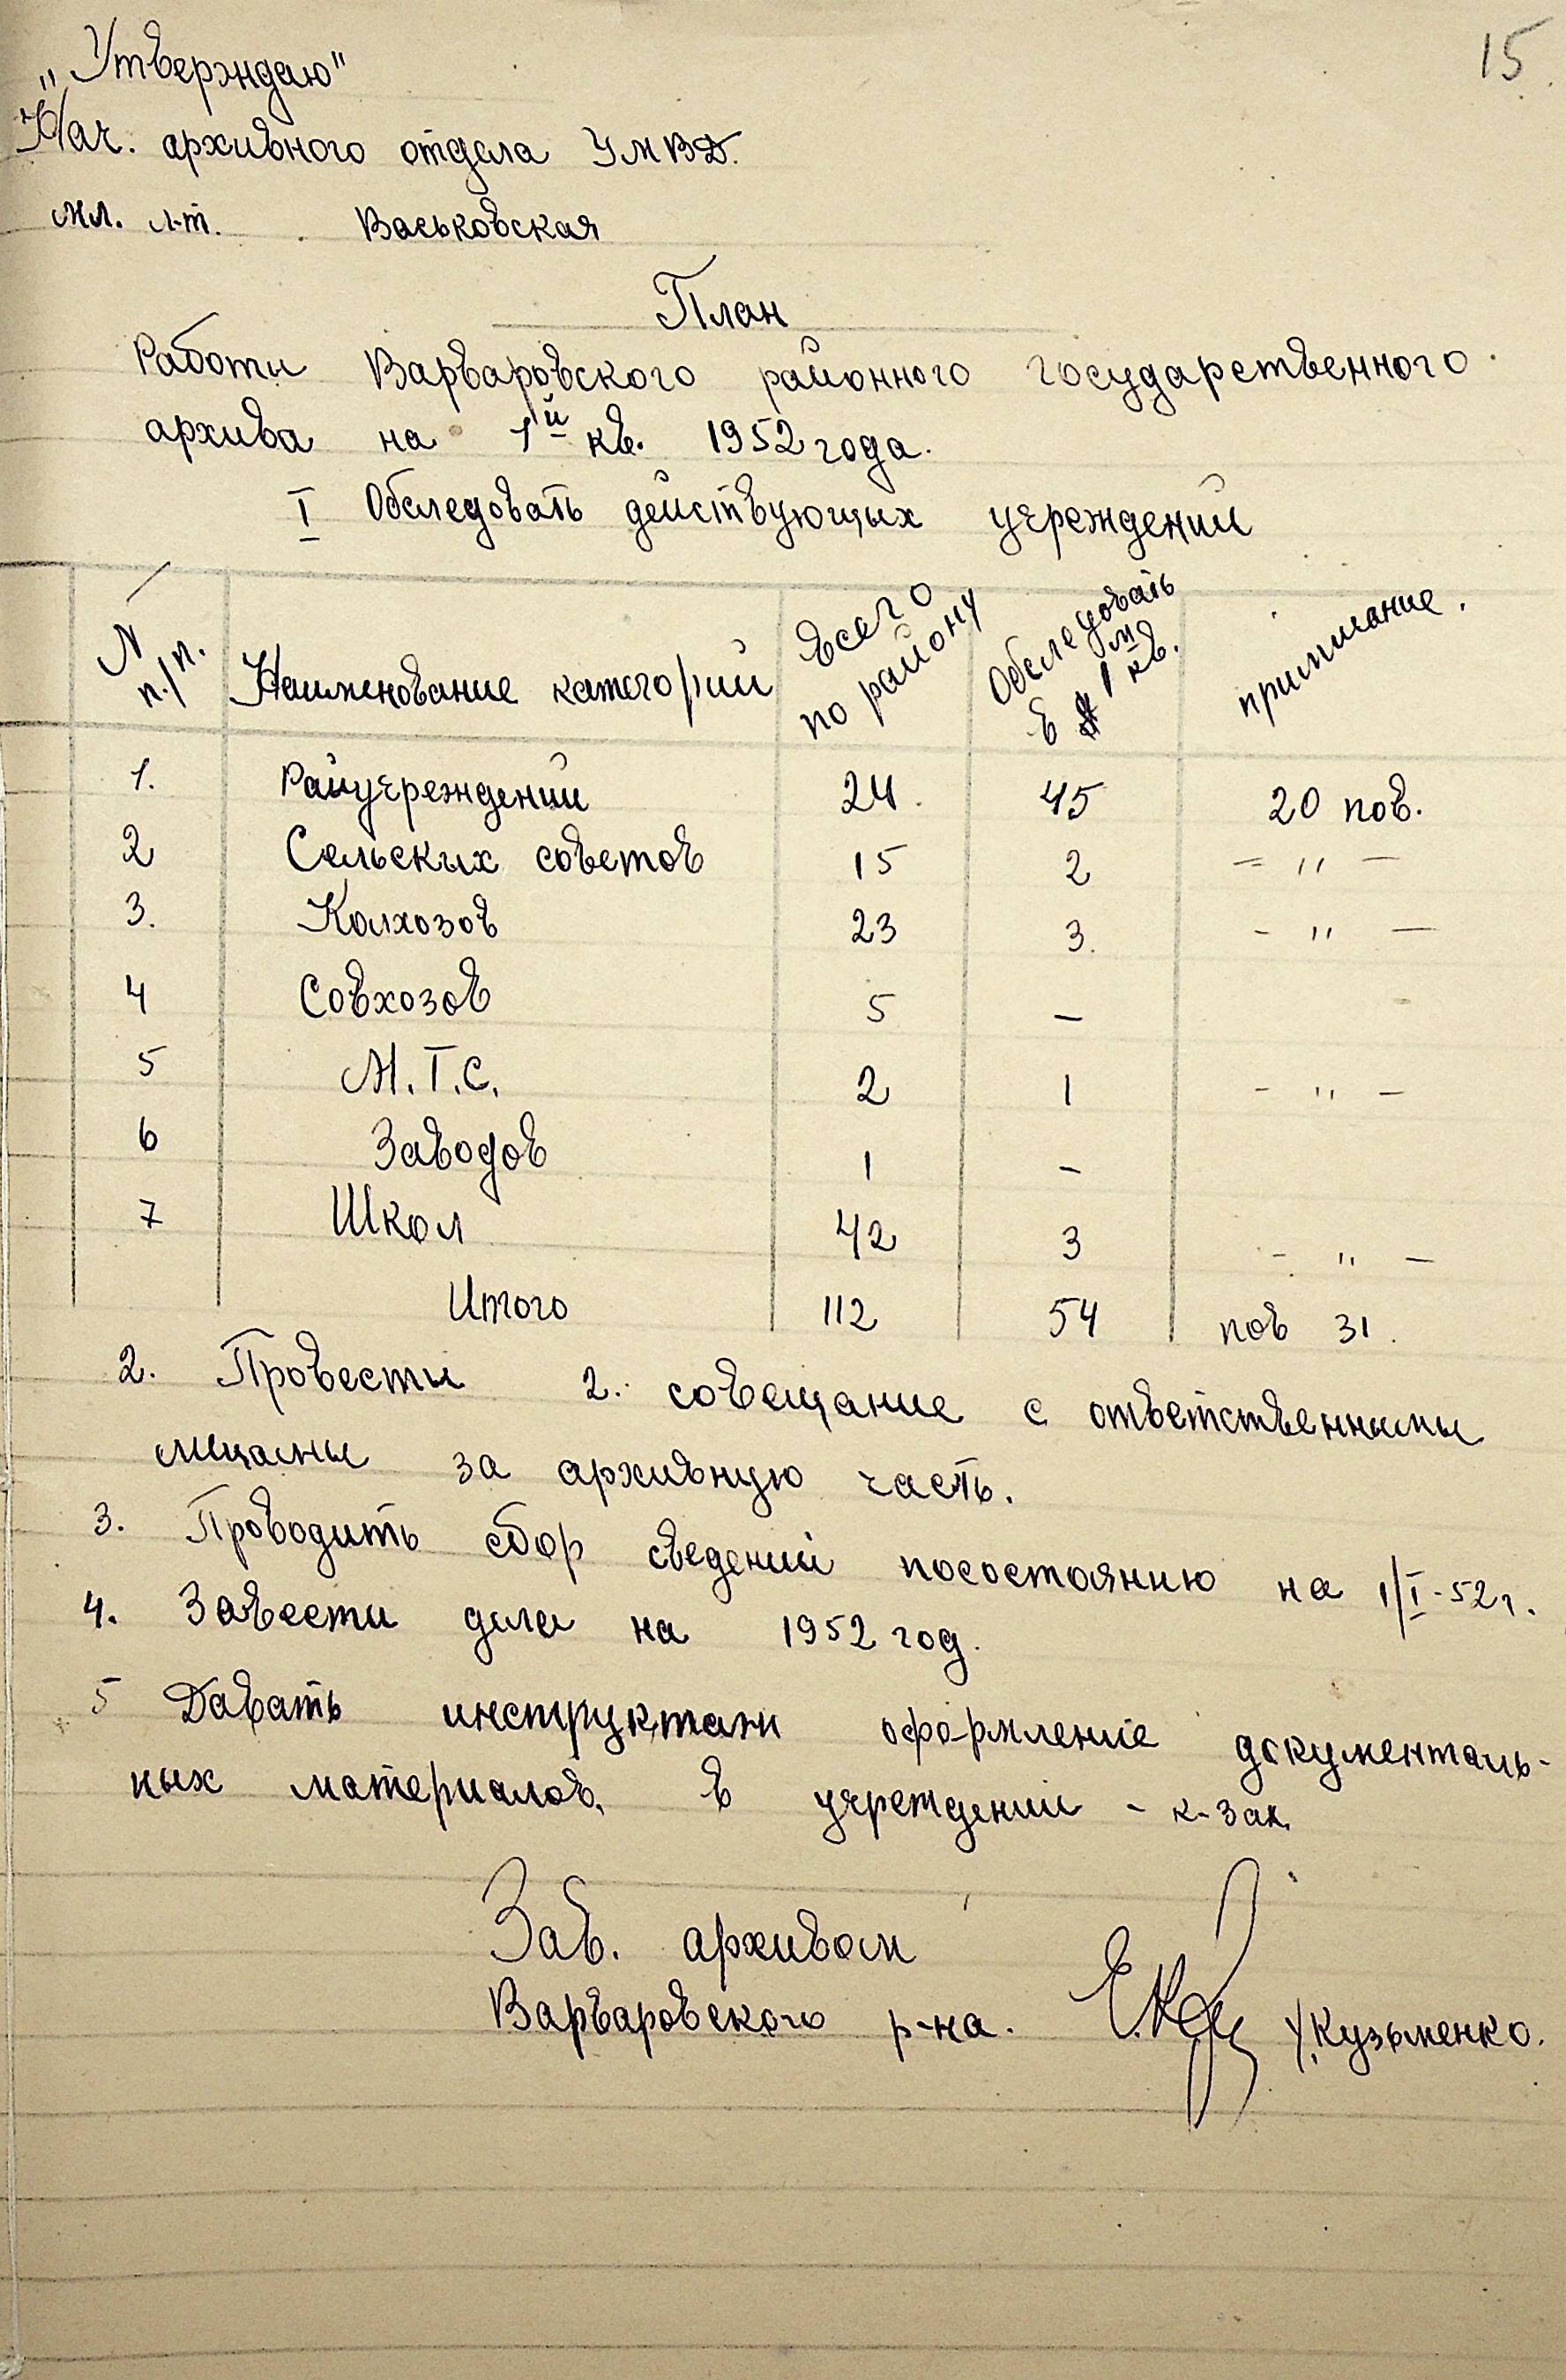 15
„Утверждаю"
Нач. архивного отдела УМВД.
мл. л-т. Васьковская
План
Работи Варваровского районного государственного
архива на 1й кв. 1952 года.
I Обследовать действующых учреждений
N п./п. Наименование категорий Всего по району Обследовать в 1м кв. примичание.
1. Райучреждений 24. 45 20 пов.
2 Сельских советов 15 2 – " –
3. Колхозов 23 3. – " –
4 Совхозов 5 –
5 М.Т.С. 2 1 – " –
6 Заводов 1 –
7 Школ 42 3 – " –
Итого 112 54 пов 31.
2. Провести 2. совещание с ответственными
лицамы за архивную часть.
3. Проводить сбор сведений посостоянию на 1/I-52г.
4. Завести дела на 1952 год.
5 Давать инструктажи оформление документаль-
ных материалов, в учреждений - к-зах.
Зав. архивом
Варваровского р-на. У.Кузьменко.